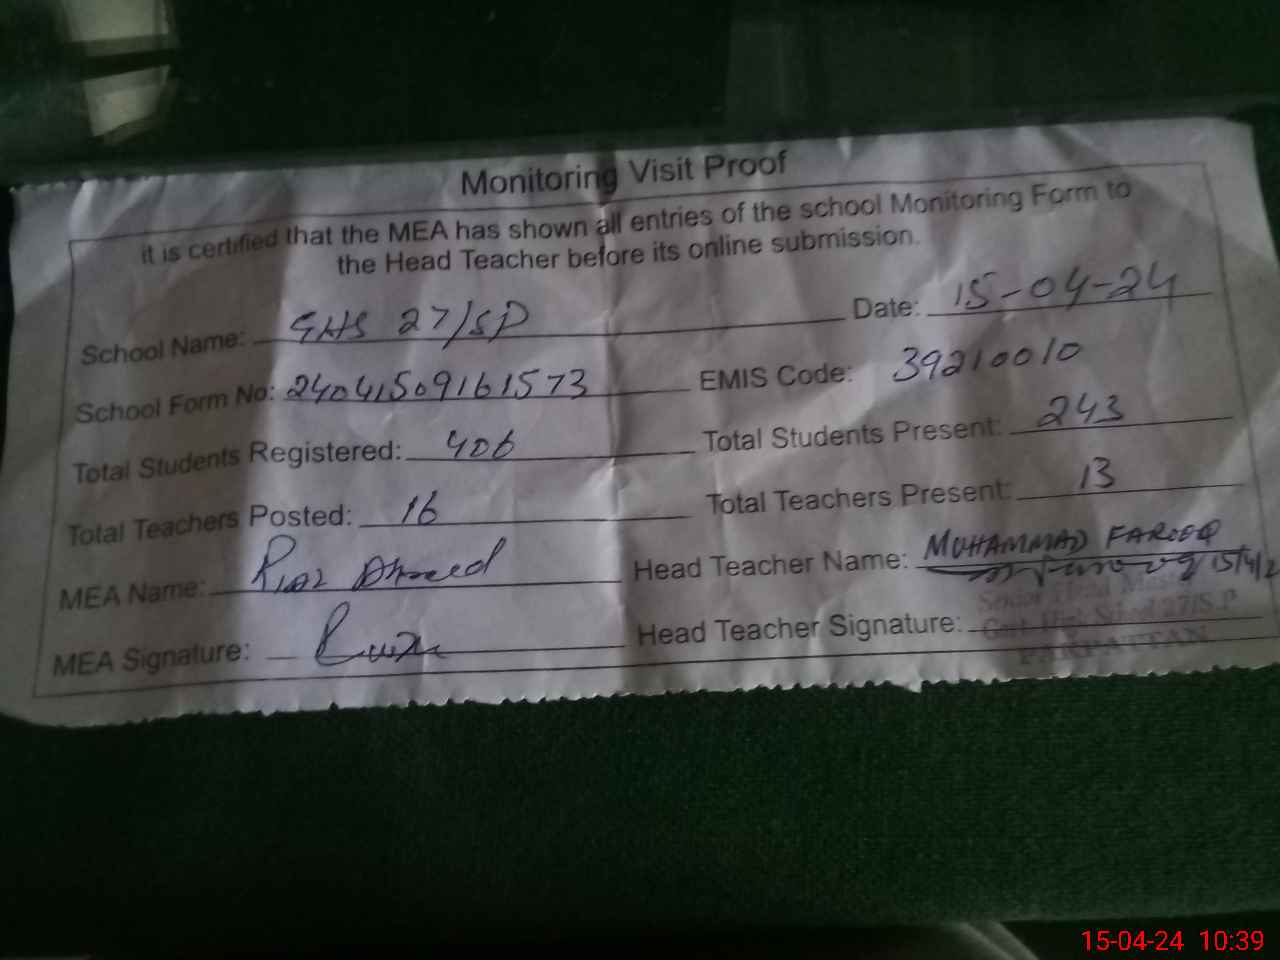 Monitoring Visit Proof
it is certified that the MEA has shown all entries of the school Monitoring Form to
the Head Teacher before its online submission.
School Name: GHS 27/SP Date: 15-04-24
School Form No: 24041509161573 EMIS Code: 39210010
Total Students Registered: 406 Total Students Present: 243
Total Teachers Posted: 16 Total Teachers Present: 13
MEA Name: Riaz Ahmed Head Teacher Name: MUHAMMAD FAROOQ
15/4/2
MEA Signature: Head Teacher Signature:
Senior Head Master
Govt. High School 27/S.P
PAKPATTAN
15-04-24 10:39